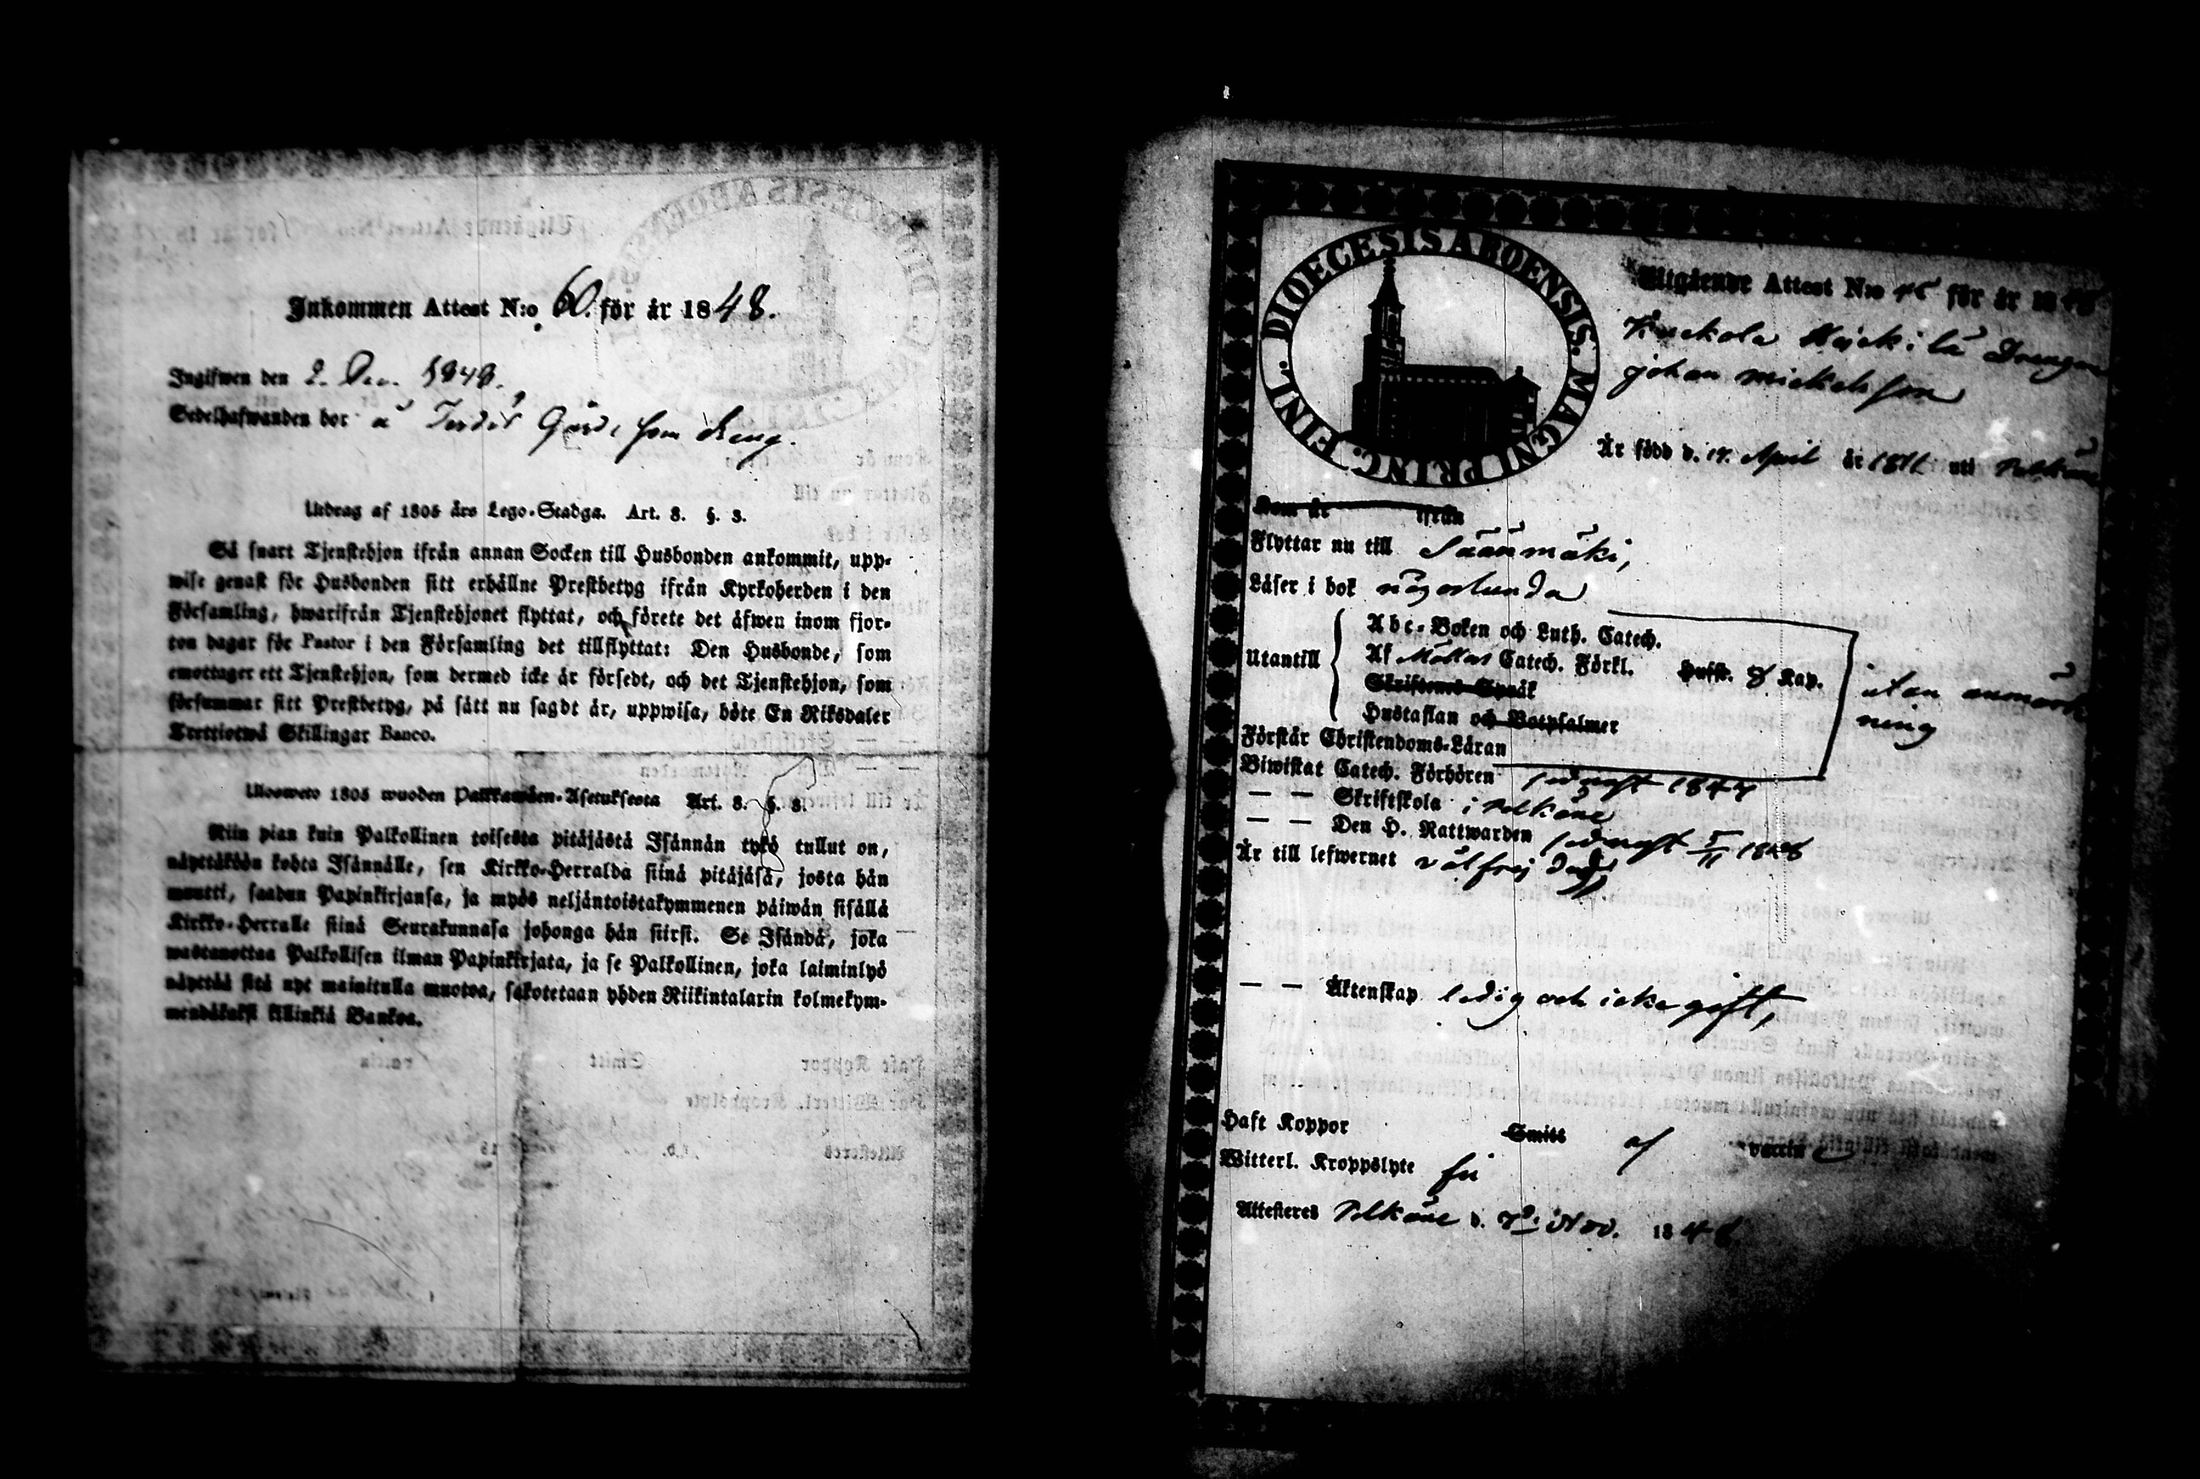 Inkommen Attest N:o 60. för år 1848.
Ingifwen den 2. Dec. 1848.
Sedelhafwanden bor å Gård, som dreng.
Utdrag af 1805 års Lego-Stadga. Art. 8. §. 3.
Så snart Tjenstehjon ifrån annan Socken till Husbonden ankommit, upp-
wise genast för Husbonden sitt erhållne Prestbetyg ifrån Kyrkoherden i den
Församling, hwarifrån Tjenstehjonet flyttat, och förete det äfwen inom fjor-
ton dagar för Pastor i den Församling det tillflyttat: Den Husbonde, som
emottager ett Tjenstehjon, som dermed icke är försedt, och det Tjenstehjon, som
försummar sitt Prestbetyg, på sätt nu sagdt är, uppwisa, böte En Riksdaler
Trettiotwå Skillingar Banco.
Ulosweto 1805 wuoden Palkkawäen-Asetuksesta Art. 8. §. 3.
Niin pian kuin Palkollinen toisesta pitäjästä Isännän tykö tullut on,
näyttäköön kohta Isännälle, sen Kirkko-Herralda siinä pitäjäsä, josta hän
muutti, saadun Papinkirjansa, ja myös neljäntoistakymmenen päiwän sisällä
Kirkko-Herralle siinä Seurakunnasa johonga hän siirsi. Se Isändä, joka
wastanottaa Palkollisen ilman Papinkirjata, ja se Palkollinen, joka laiminlyö
näyttää sitä nyt mainitulla muotoa, sakotetaan yhden Riikintalarin kolmekym-
mendäkaksi killinkiä Bankoa.
DIOECESIS ABOENSIS. MAGNI PRINC. FINL.
Utgående Attest N:o 45 för år 1848
Heickilä Drengen
Johan Mickelsson
Är född d. 17. April år 1811 uti Pelkäne
Kom år ifrån
Flyttar nu till Sääxmäki,
Läser i bok någorlunda
Utantill
Abc-Boken och Luth. Catech.
Af Möllers Catech. Förkl. Hufst. 8 Kap.
Skriftenes Språk
Hustaflan och Botpsalmer
utan anmärk
ning
Förstår Christendoms-Läran
Biwistat Catech. Förhören sednast 1847
— — Skriftskola i Pelkäne
— — Den H. Nattwarden sednast 5/11 1848
Är till lefwernet välfrejdad
— — Äktenskap ledig och icke gift,
Haft Koppor Smitt af vaccin
Witterl. Kroppslyte fri
Attesteres Pelkäne d. Nov. 1848